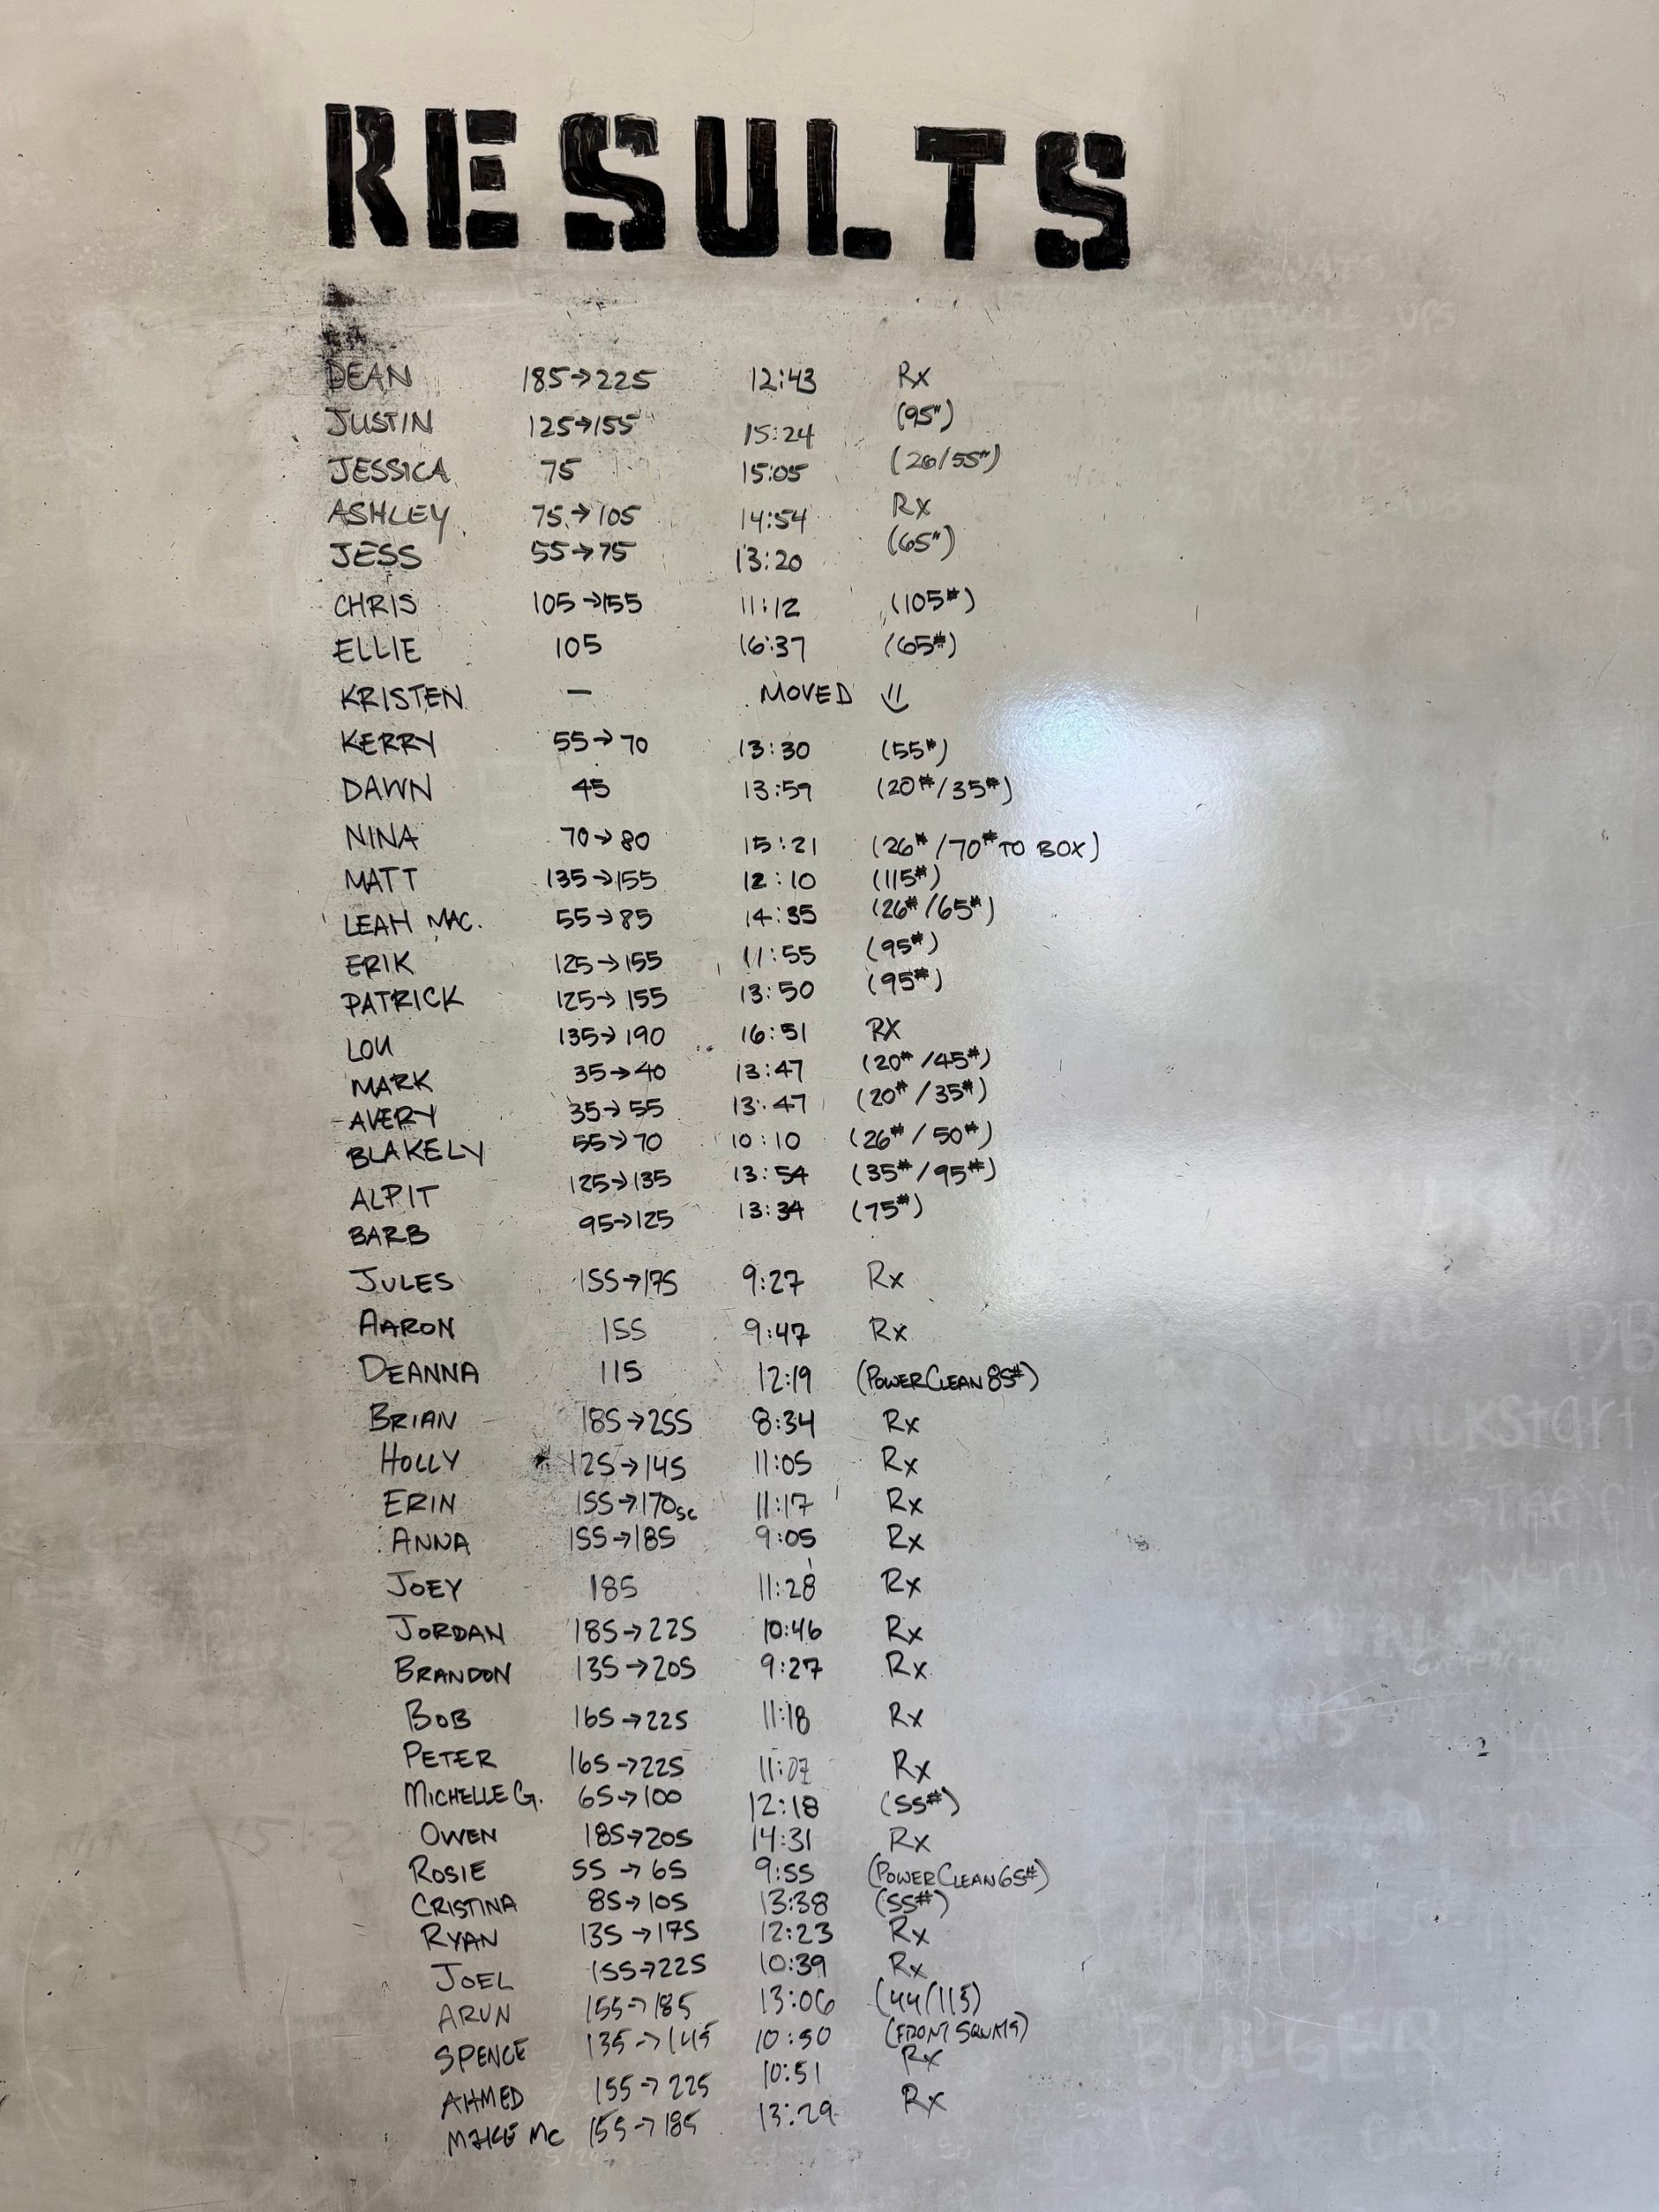 RESULTS
DEAN 185→225 12:43 Rx
JUSTIN 125→155 15:24 (95#)
JESSICA 75 15:05 (26/55#)
ASHLEY 75→105 14:54 Rx
JESS 55→75 13:20 (65#)
CHRIS 105→155 11:12 (105#)
ELLIE 105 16:37 (65#)
KRISTEN — MOVED
KERRY 55→70 13:30 (55#)
DAWN 45 13:59 (20#/35#)
NINA 70→80 15:21 (26#/70# TO BOX)
MATT 135→155 12:10 (115#)
LEAH MAC. 55→85 14:35 (26#/65#)
ERIK 125→155 11:55 (95#)
PATRICK 125→155 13:50 (95#)
LOU 135→190 16:51 RX
MARK 35→40 13:47 (20#/45#)
AVERY 35→55 13:47 (20#/35#)
BLAKELY 55→70 10:10 (26#/50#)
ALPIT 125→135 13:54 (35#/95#)
BARB 95→125 13:34 (75#)
JULES 155→175 9:27 Rx
AARON 155 9:47 Rx
DEANNA 115 12:19 (POWER CLEAN 85#)
BRIAN 185→255 8:34 Rx
HOLLY 125→145 11:05 Rx
ERIN 155→170sc 11:17 Rx
ANNA 155→185 9:05 Rx
JOEY 185 11:28 Rx
JORDAN 185→225 10:46 Rx
BRANDON 135→205 9:27 Rx
BOB 165→225 11:18 Rx
PETER 165→225 11:07 Rx
MICHELLE G. 65→100 12:18 (55#)
OWEN 185→205 14:31 Rx
ROSIE 55→65 9:55 (POWER CLEAN 65#)
CRISTINA 85→105 13:38 (55#)
RYAN 135→175 12:23 Rx
JOEL 155→225 10:39 Rx
ARUN 155→185 13:06 (44/115)
SPENCE 135→145 10:50 (FRONT SQUATS)
AHMED 155→225 10:51 Rx
MIKE MC 155→185 13:29 Rx